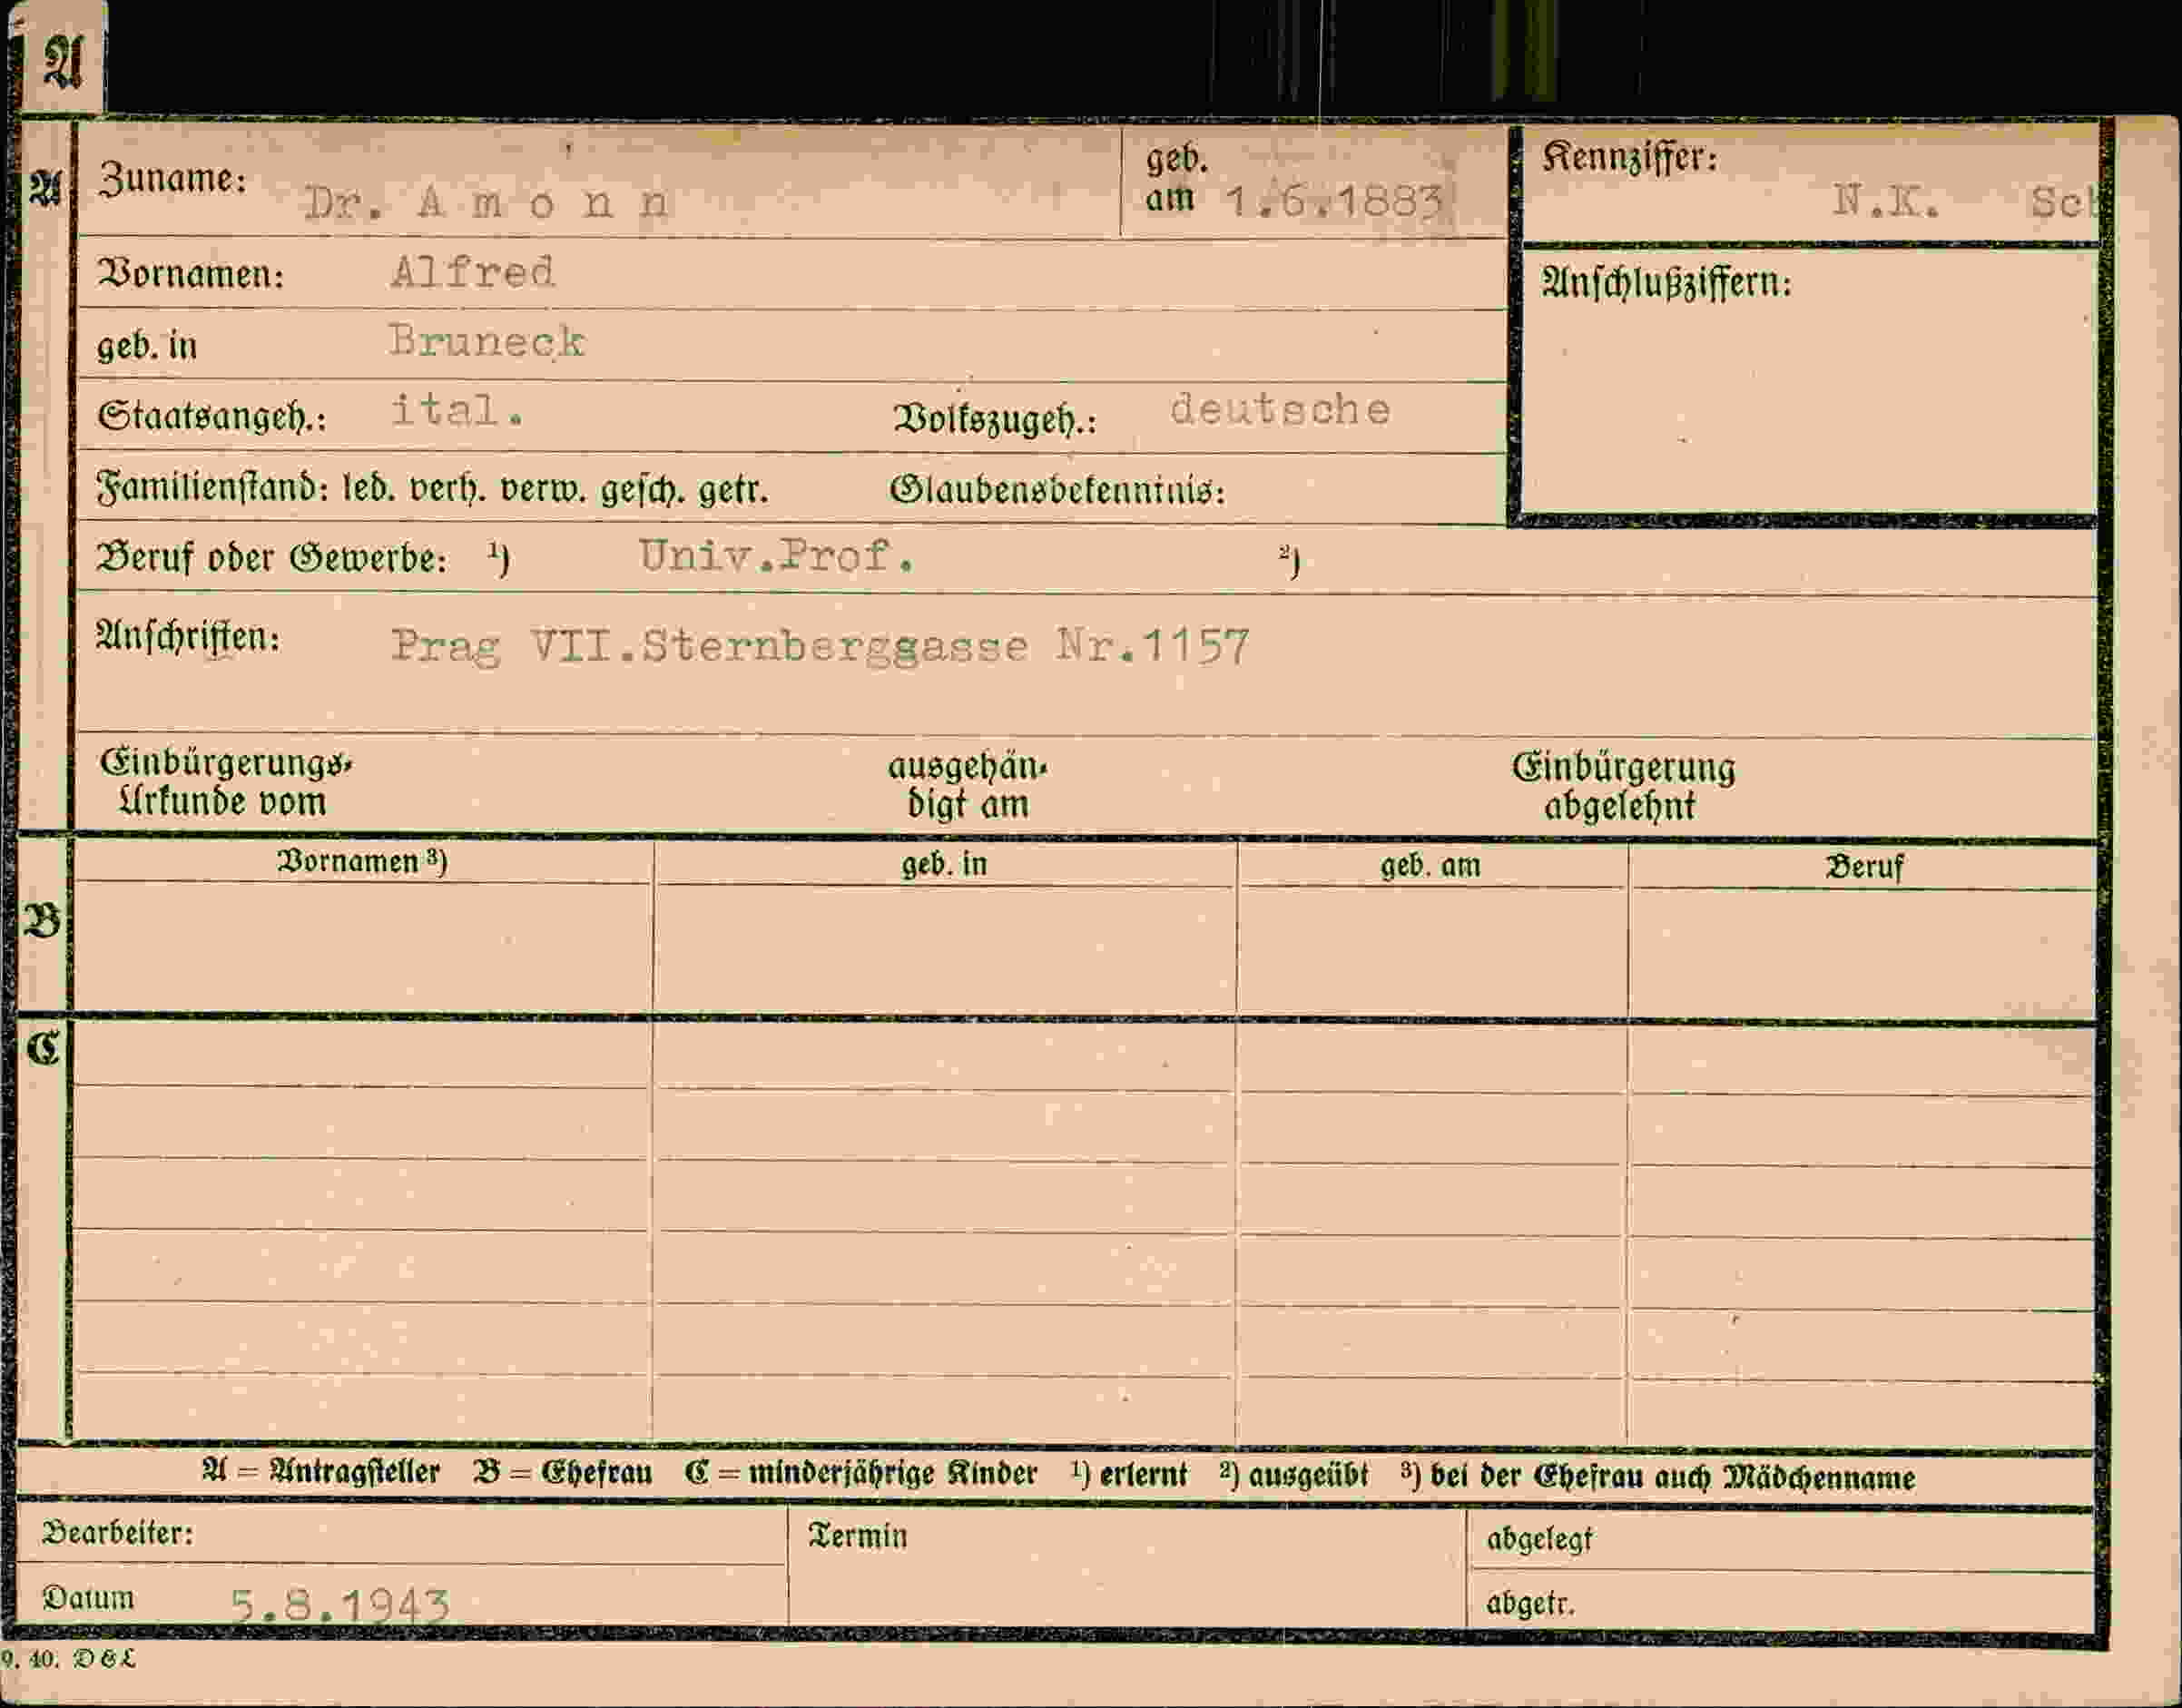 A
A
Zuname: Dr. A m o n n
geb. am 1.6.1883
Kennziffer: N.K. Sch
Vornamen: Alfred
Anschlußziffern:
geb. in Bruneck
Staatsangeh.: ital. Volkszugeh.: deutsche
Familienstand: led. verh. verw. gesch. getr. Glaubensbekenntnis:
Beruf oder Gewerbe: ¹) Univ.Prof. ²)
Anschriften: Prag VII.Sternberggasse Nr.1157
Einbürgerungs- ausgehän- Einbürgerung
Urkunde vom digt am abgelehnt
Vornamen ³) geb. in geb. am Beruf
B
C
A = Antragsteller B = Ehefrau C = minderjährige Kinder ¹) erlernt ²) ausgeübt ³) bei der Ehefrau auch Mädchenname
Bearbeiter: Termin abgelegt
Datum 5.8.1943 abgetr.
9. 40. D&L